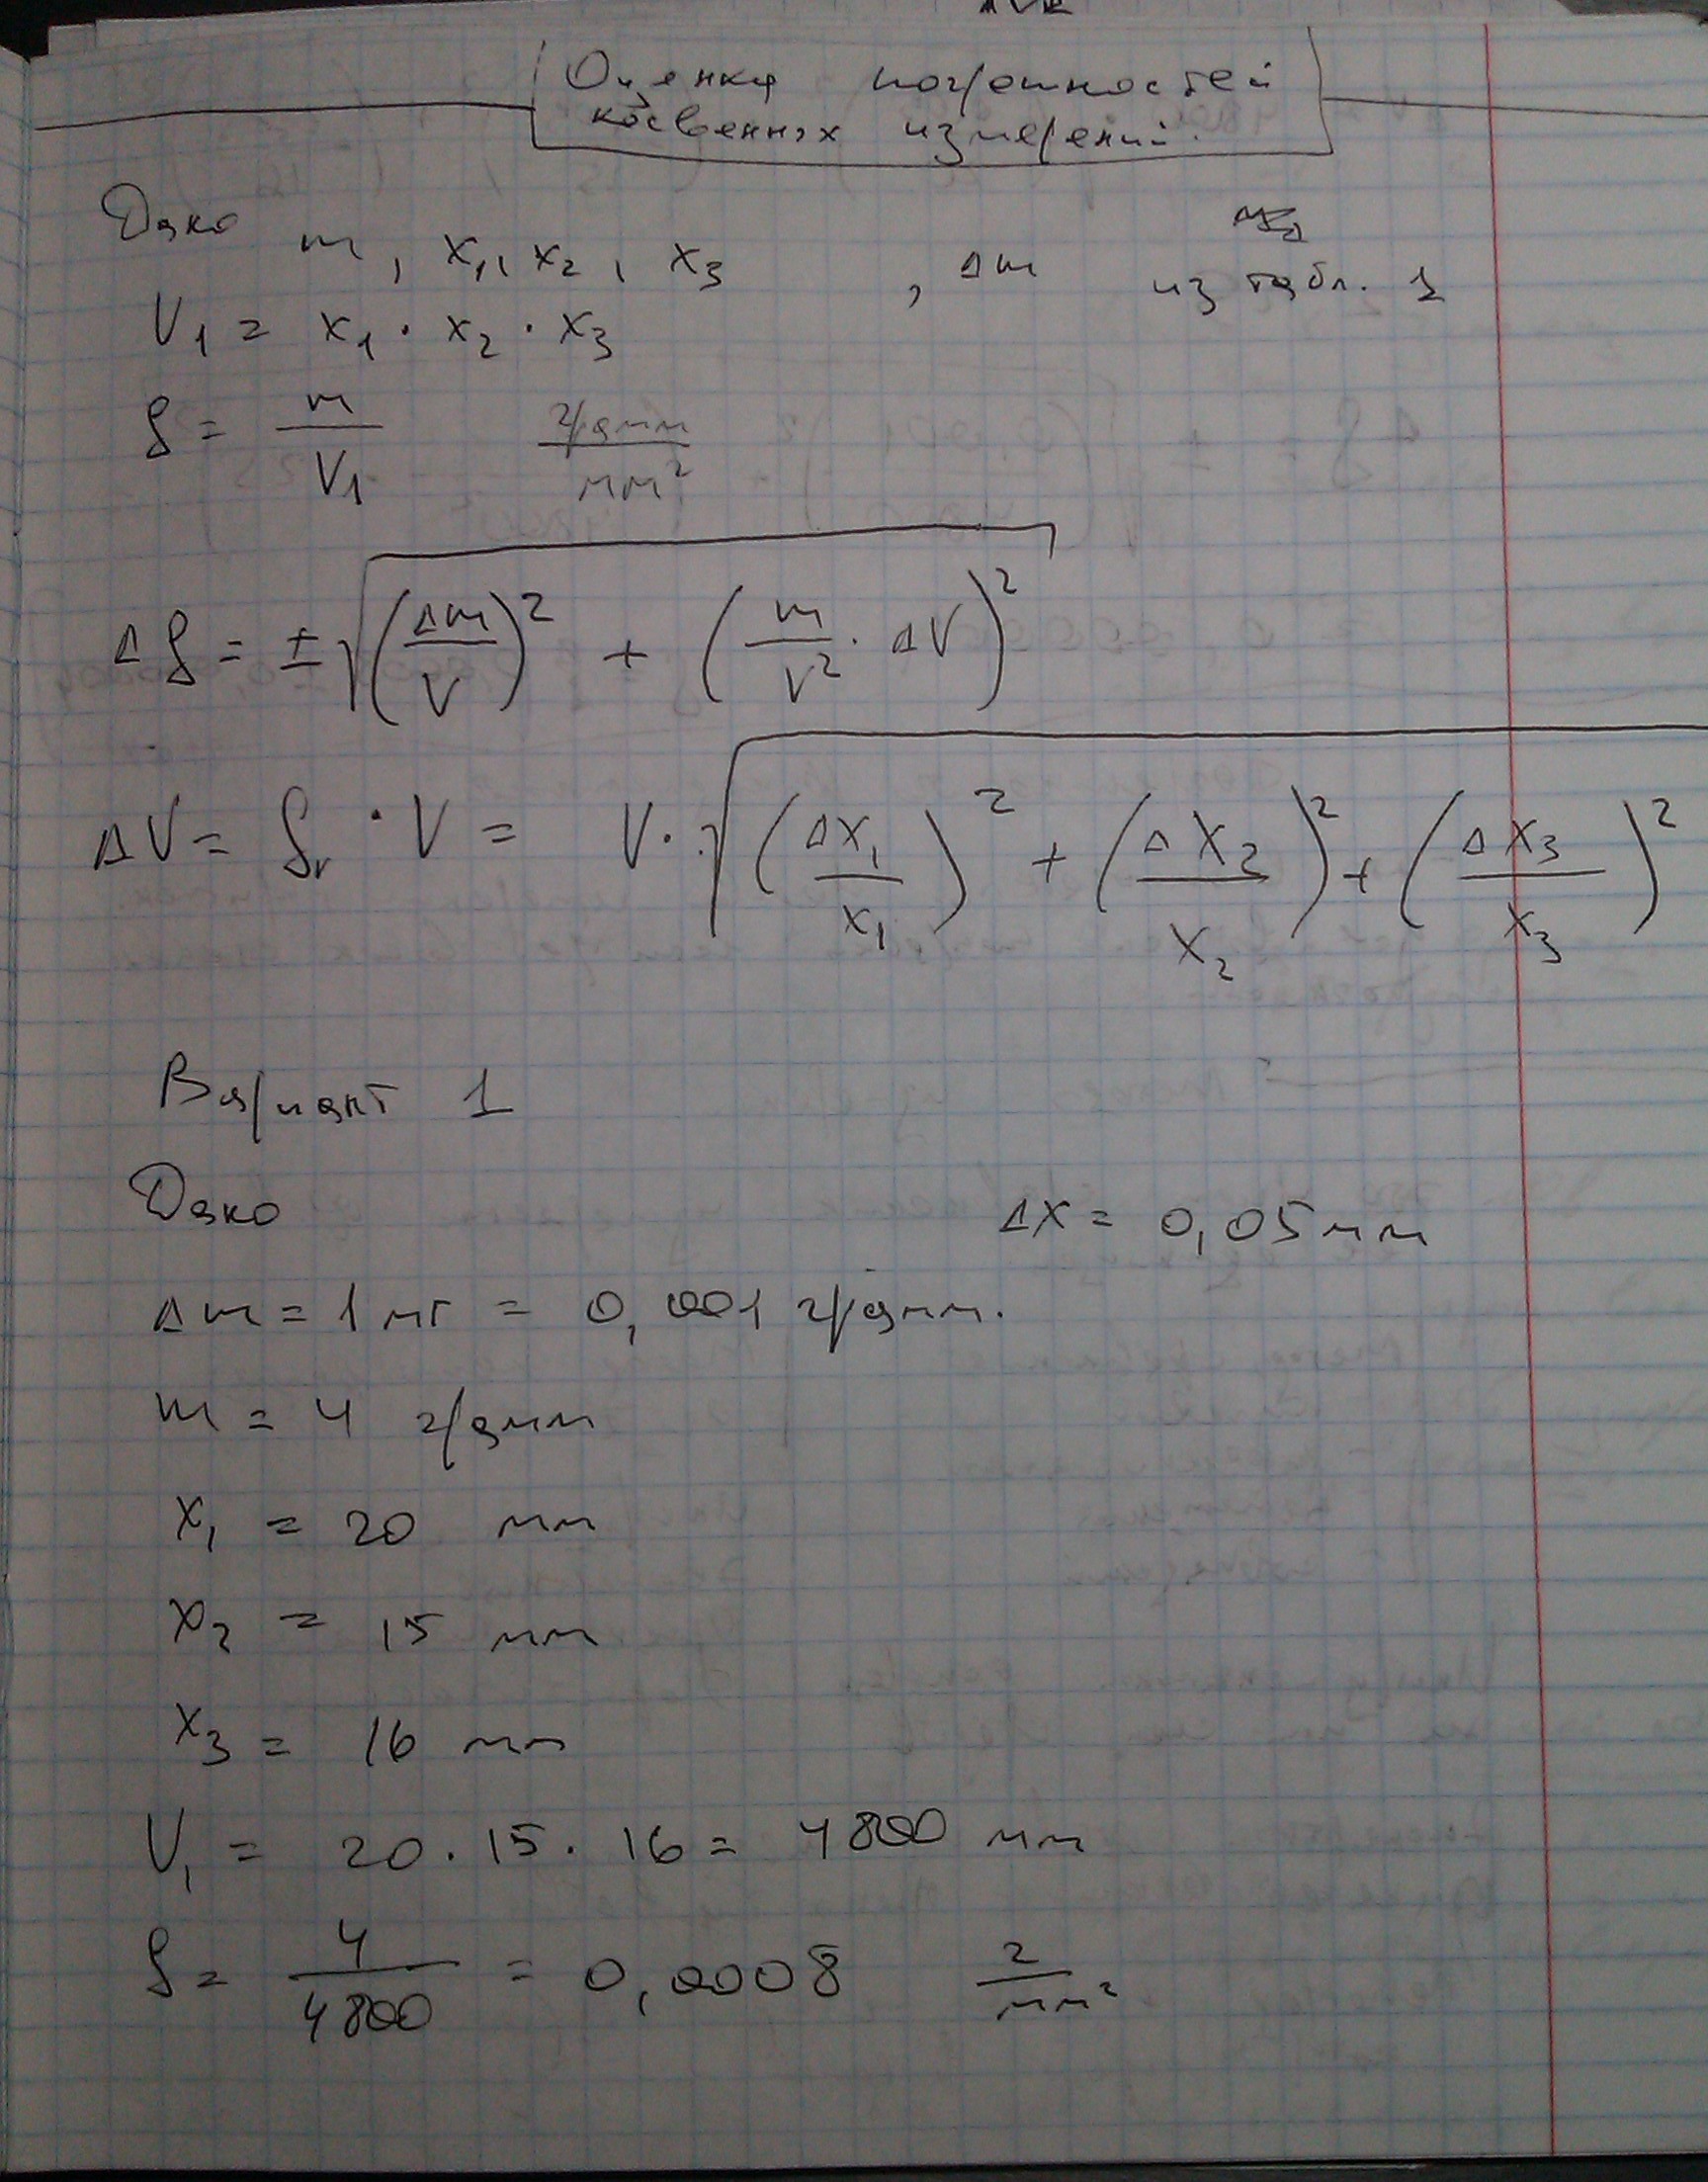 Оценка погрешностей
косвенных измерений.
Дано m, x₁, x₂, x₃ , Δm из табл. 1
V₁ = x₁ · x₂ · x₃
ρ = m/V₁ грамм/мм²
Δρ = ±√((Δm/V)² + (m/V² · ΔV)²)
ΔV = δᵥ · V = V · √((Δx₁/x₁)² + (Δx₂/x₂)² + (Δx₃/x₃)²)
Вариант 1
Дано Δx = 0,05 мм
Δm = 1 мг = 0,001 грамм.
m = 4 грамм
x₁ = 20 мм
x₂ = 15 мм
x₃ = 16 мм
V₁ = 20 · 15 · 16 = 4800 мм
ρ = 4/4800 = 0,0008 г/мм²